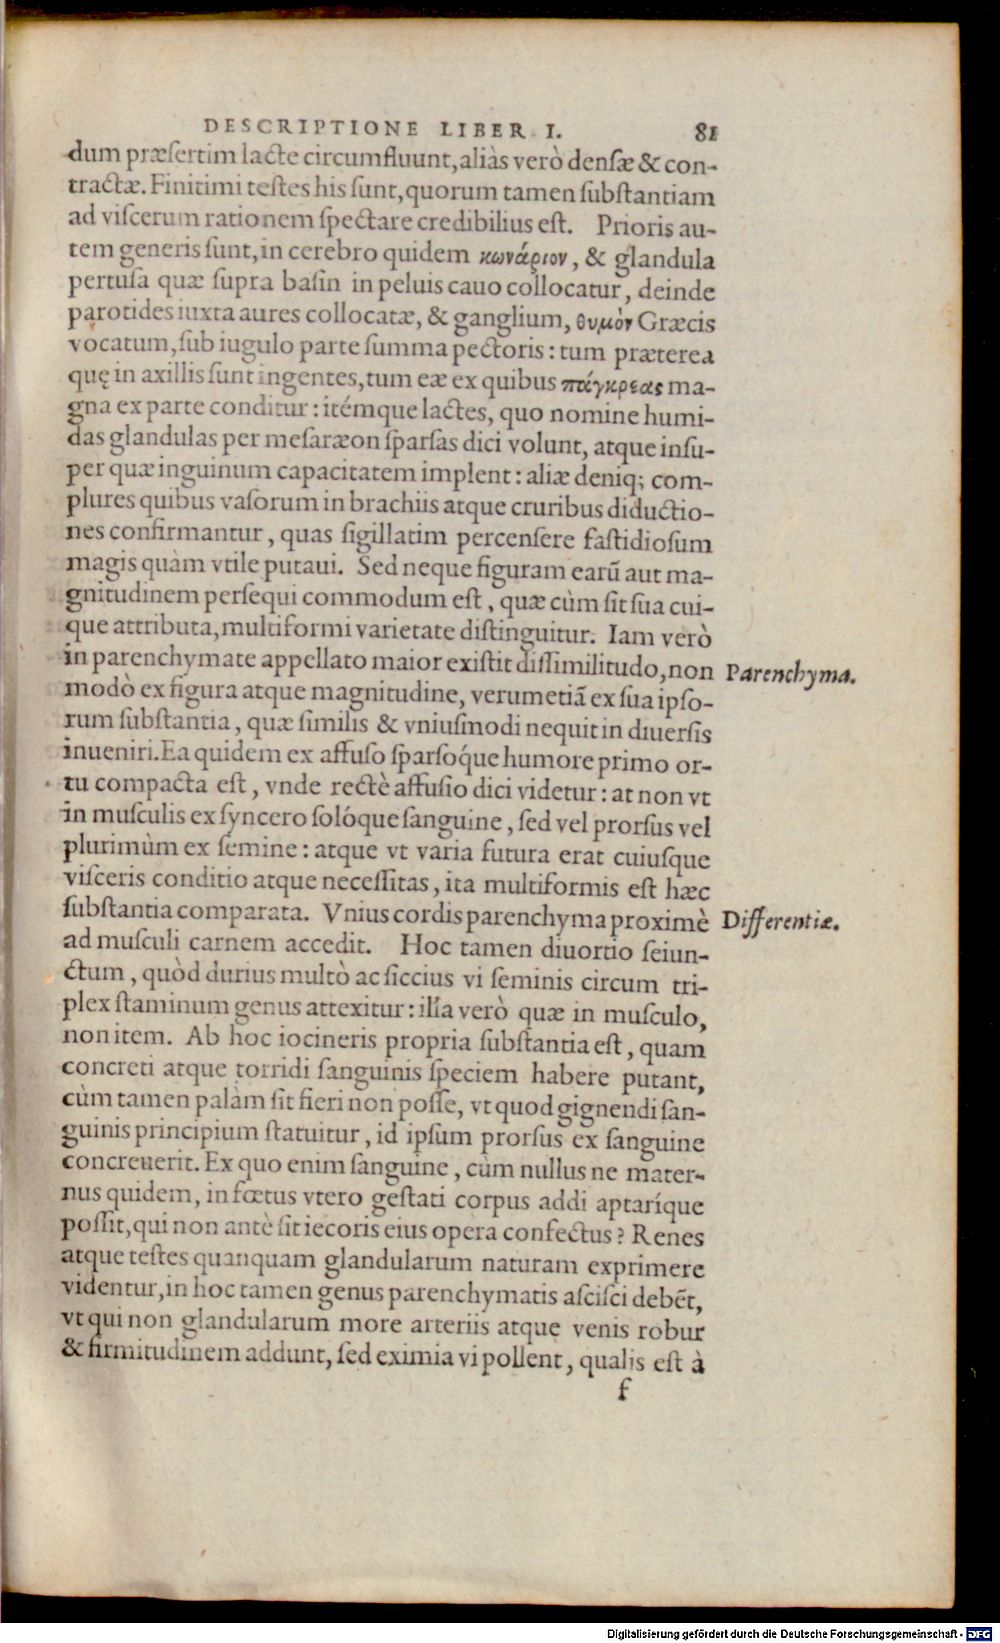 DESCRIPTIONE LIBER I. 81
dum præſertim lacte circumfluunt, aliàs verò denſæ & con-
tractæ. Finitimi teſtes his ſunt, quorum tamen ſubſtantiam
ad viſcerum rationem ſpectare credibilius eſt. Prioris au-
tem generis ſunt, in cerebro quidem κωνάριον, & glandula
pertuſa quæ ſupra baſin in peluis cauo collocatur, deinde
parotides iuxta aures collocatæ, & ganglium, θυμὸν Græcis
vocatum, ſub iugulo parte ſumma pectoris: tum præterea
quę in axillis ſunt ingentes, tum eæ ex quibus πάγκρεας ma-
gna ex parte conditur: itémque lactes, quo nomine humi-
das glandulas per meſaræon ſparſas dici volunt, atque inſu-
per quæ inguinum capacitatem implent: aliæ deniq; com-
plures quibus vaſorum in brachiis atque cruribus diductio-
nes confirmantur, quas ſigillatim percenſere faſtidioſum
magis quàm vtile putaui. Sed neque figuram earū aut ma-
gnitudinem perſequi commodum eſt, quæ cùm ſit ſua cui-
que attributa, multiformi varietate diſtinguitur. Iam verò
in parenchymate appellato maior exiſtit diſſimilitudo, non
Parenchyma.
modò ex figura atque magnitudine, verumetiā ex ſua ipſo-
rum ſubſtantia, quæ ſimilis & vniuſmodi nequit in diuerſis
inueniri. Ea quidem ex affuſo ſparſóque humore primo or-
tu compacta eſt, vnde rectè affuſio dici videtur: at non vt
in muſculis ex ſyncero ſolóque ſanguine, ſed vel prorſus vel
plurimùm ex ſemine: atque vt varia futura erat cuiuſque
viſceris conditio atque neceſſitas, ita multiformis eſt hæc
ſubſtantia comparata. Vnius cordis parenchyma proximè
Differentiæ.
ad muſculi carnem accedit. Hoc tamen diuortio ſeiun-
ctum, quòd durius multò ac ſiccius vi ſeminis circum tri-
plex ſtaminum genus attexitur: illa verò quæ in muſculo,
non item. Ab hoc iocineris propria ſubſtantia eſt, quam
concreti atque torridi ſanguinis ſpeciem habere putant,
cùm tamen palàm ſit fieri non poſſe, vt quod gignendi ſan-
guinis principium ſtatuitur, id ipſum prorſus ex ſanguine
concreuerit. Ex quo enim ſanguine, cùm nullus ne mater-
nus quidem, in fœtus vtero geſtati corpus addi aptaríque
poſſit, qui non antè ſit iecoris eius opera confectus? Renes
atque teſtes quanquam glandularum naturam exprimere
videntur, in hoc tamen genus parenchymatis aſciſci debēt,
vt qui non glandularum more arteriis atque venis robur
& firmitudinem addunt, ſed eximia vi pollent, qualis eſt à
f
Digitalisierung gefördert durch die Deutsche Forschungsgemeinschaft - DFG